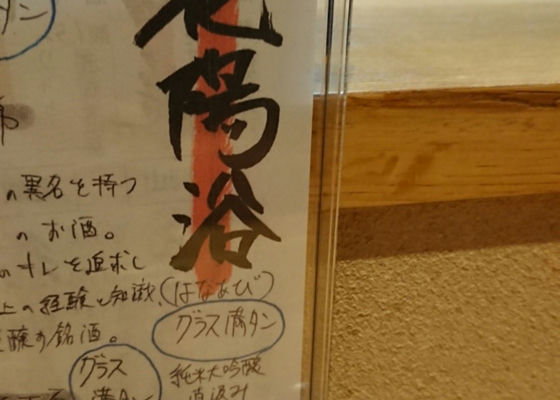 花陽浴
(はなあび)
グラス満タン
純米大吟醸
直汲み
の異名を持つ
のお酒。
のキレを追求し
上の経験と知識、
醸す銘酒。
グラス
満タン
タン